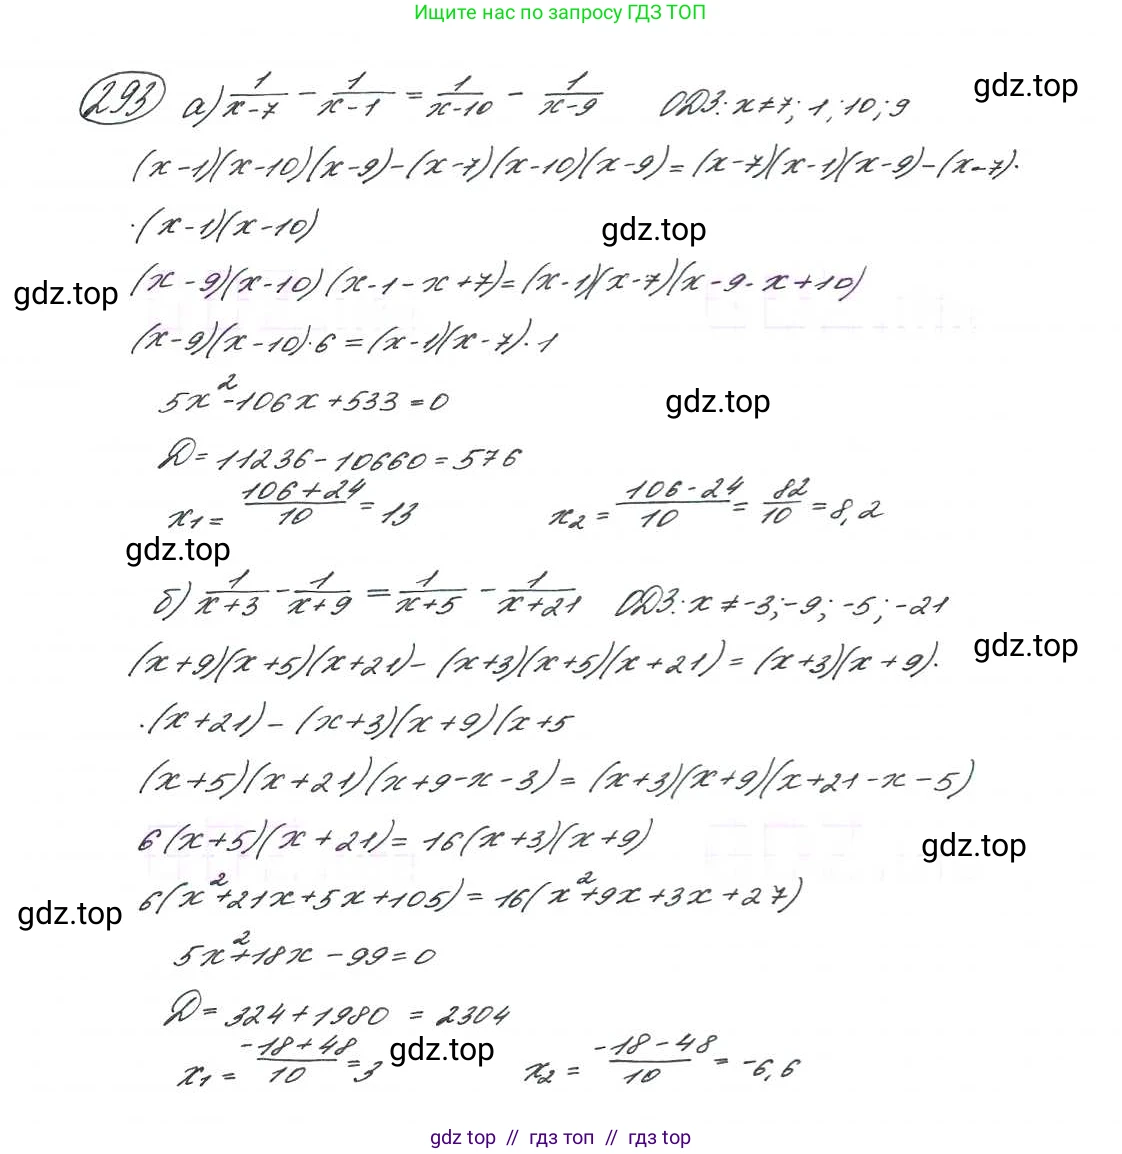 Ищите нас по запросу ГДЗ ТОП
293 а) 1/(x-7) - 1/(x-1) = 1/(x-10) - 1/(x-9) ОДЗ: x≠7; 1; 10; 9
gdz.top
(x-1)(x-10)(x-9)-(x-7)(x-10)(x-9)=(x-7)(x-1)(x-9)-(x-7)·
·(x-1)(x-10)
gdz.top
gdz.top
(x-9)(x-10)(x-1-x+7)=(x-1)(x-7)(x-9-x+10)
(x-9)(x-10)·6=(x-1)(x-7)·1
5x²-106x+533=0
gdz.top
Д=11236-10660=576
x₁= (106+24)/10 = 13 x₂ = (106-24)/10 = 82/10 = 8,2
gdz.top
б) 1/(x+3) - 1/(x+9) = 1/(x+5) - 1/(x+21) ОДЗ: x≠-3; -9; -5; -21
gdz.top
(x+9)(x+5)(x+21)-(x+3)(x+5)(x+21)=(x+3)(x+9)·
·(x+21)-(x+3)(x+9)(x+5
(x+5)(x+21)(x+9-x-3)=(x+3)(x+9)(x+21-x-5)
6(x+5)(x+21)=16(x+3)(x+9)
gdz.top
6(x²+21x+5x+105)=16(x²+9x+3x+27)
gdz.top
5x²+18x-99=0
Д=324+1980=2304
x₁ = (-18+48)/10 = 3 gdz.top x₂ = (-18-48)/10 = -6,6
gdz top // гдз топ // гдз top